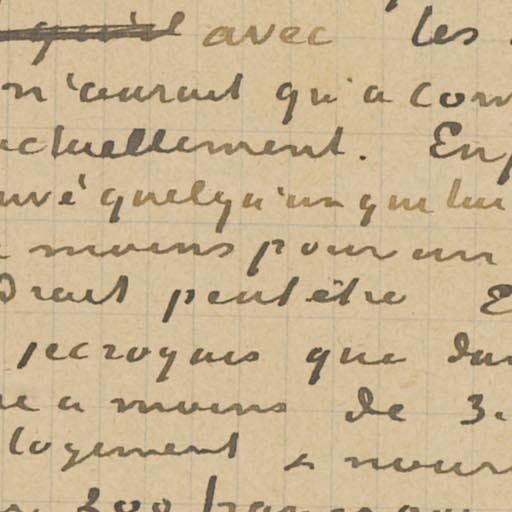 qu'il avec les
n'aurait qu'a com
actuellement. En
uvé quelqu'un qui lui
moins pour un
Drait peut être E
je croyais que dan
a moins de 3.
logement & nour
300 francs